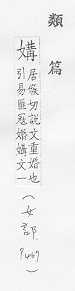 類篇
媾
居候切說文重婚也
引易匪冦婚媾文一
(女部
9469)